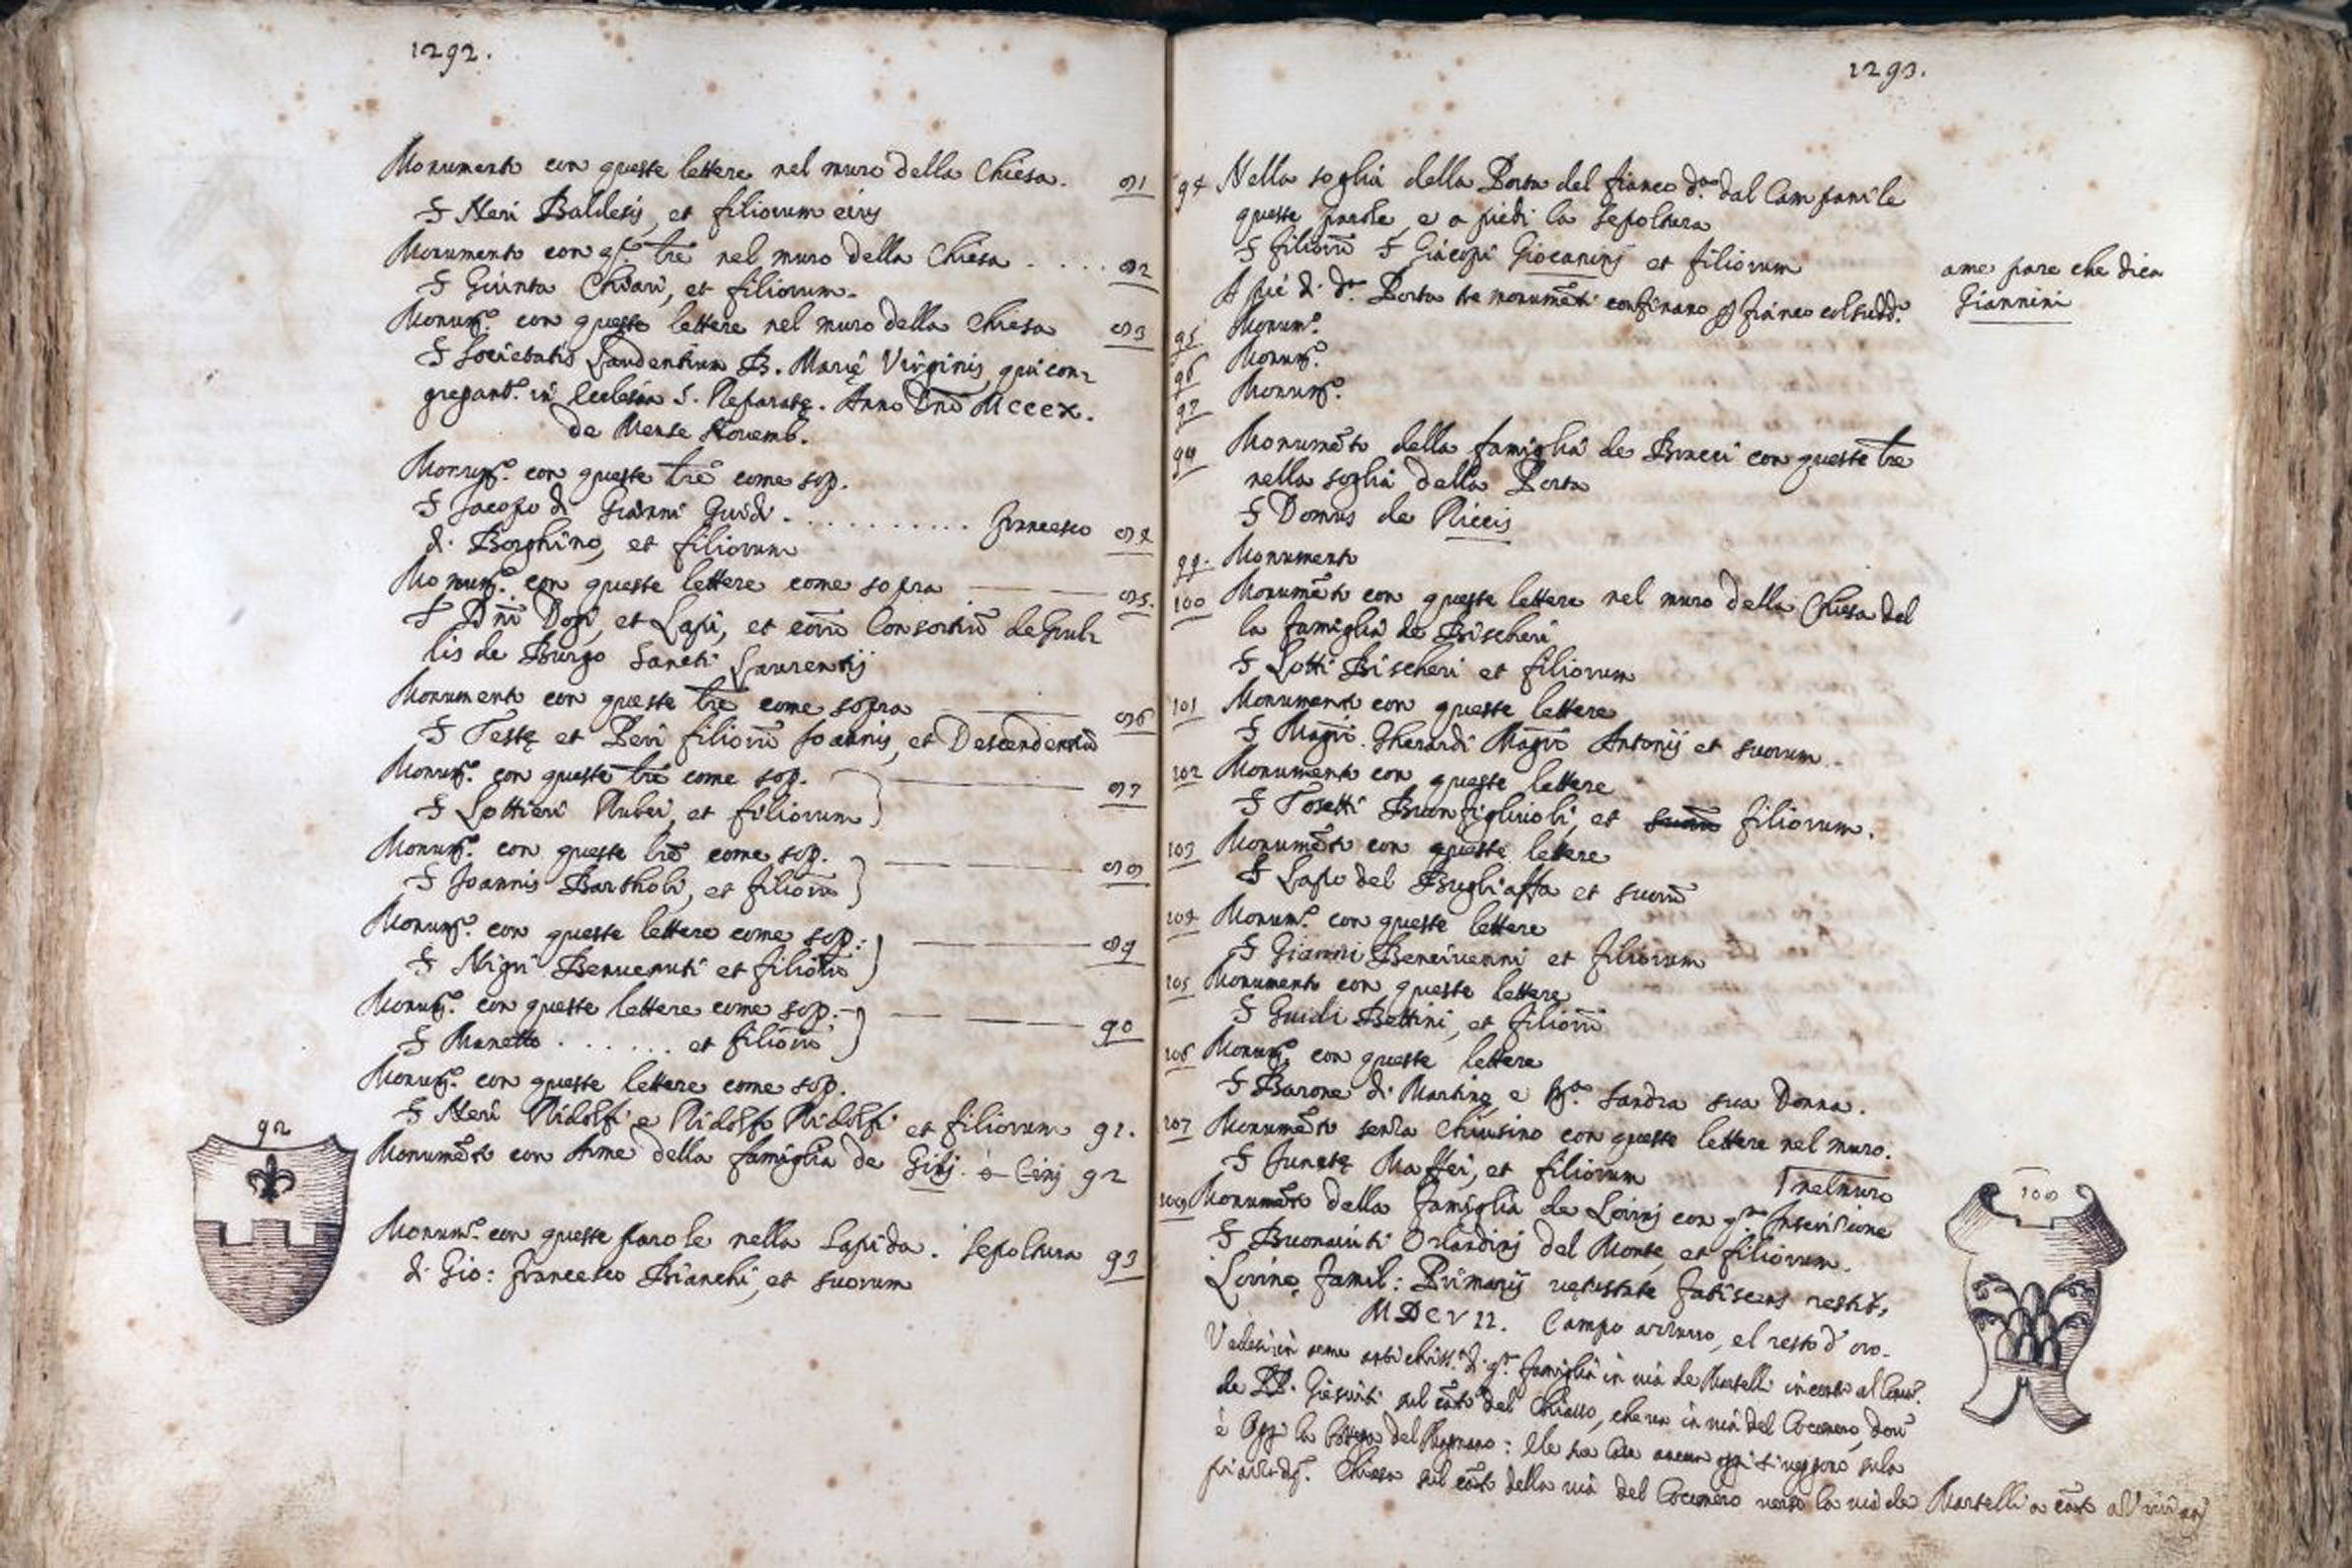 1292.
Monumento con queste lettere nel muro della Chiesa. 81
S Neri Baldesis, et filiorum eius
Monumento con q.e tre nel muro della Chiesa . . . . 82
S Giunta Chiari, et filiorum.
Monum.o con queste lettere nel muro della Chiesa 83
S Societatis Laudentium B. Marię Virginis, qui con=
gregant.r in Ecclesia S. Reparatę. Anno Dnĩ MCCCX.
de Mense Novemb.
Monum.o con queste tre come sop.
S Jacopo di Gianni Guidi . . . . . . . . . . . Francesco 84
di Borghino, et filiorum
Monum.o con queste lettere come sopra 85.
S Dnĩ Dogi, et Lapi, et Consortiũ de
lis de Burgo Sancti Laurentij
Monumento con queste tre come sopra 86
S Testę et Peri filiorũ Joannis, et Descendentiũ
Monum.o con queste tre come sop. 87
S Lottieri Rubei, et filiorum
Monum.o con queste tre come sop. 88
S Joannis Bartholi, et filiorũ
Monum.o con queste lettere come sop: 89
S Nigri Benvenuti et filiorũ
Monum.o con queste lettere come sop. 90
S Manetto . . . . . . et filiorũ
Monum.o con queste lettere come sop.
S Neri Ridolfi e Ridolfo Ridolfi et filiorum 91.
92
Monumẽto con Arme della famiglia de Girj. ò Cinj 92
Monum.o con queste parole nella Lapida. Sepoltura 93
di Gio: Francesco Bianchi, et suorum
1293.
94 Nella soglia della Porta del fianco d.a dal Campanile
queste parole, e a piedi la sepoltura
S filiorũ S Giacopi Giocaninj et filiorum
ame pare che dica
Giannini
A piè di d.a Porta tre monumẽti confinano fianco col sudd.o
95 Monum.o
96 Monum.o
97 Monum.o
98 Monumẽto della famiglia de Bracci con queste tre
nella soglia della Porta
S Domus de Riccis
99. Monumento
100 Monumẽto con queste lettere nel muro della Chiesa del
la famiglia de Bischeri
S Lotti Bischeri et filiorum
101 Monumento con queste lettere
S Magri. Gherardi Magri Antonij et suorum
102 Monumento con queste lettere
S Tosetti Buonfigliuoli, et suorũ filiorum.
103 Monumẽto con queste lettere
S Lapo del Bugliaffa et suorũ
104 Monum.o con queste lettere
S Gianni Bencivenni et filiorum
105 Monumento con queste lettere
S Guidi Bettini, et filiorũ
106 Monum.o con queste lettere
S Barone di Martino e M.a Sandra sua Donna.
107 Monumẽto senza Chiusino con queste lettere nel muro.
S Junctę Maffei, et filiorum
nel muro
108 Monumẽto della famiglia de Lorinj con q.ta Inscritione
S Buonaiuti Orlandinj del Monte, et filiorum.
108
Lorinę famil: Primarij vetustate fatiscens restit,
MDCVII. Campo azzurro, el resto d'oro.
Vedesi in arme antichiss.a di q.ta famiglia in via de Martelli incontro al
de PP. Giesuiti sul cãto del Chiasso, che va in via del Cocomero, dove
è oggi la bottega del : le ancora oggi si veggono sula
Chiesa sul cãto della via del Cocomero verso la via de Martelli a cãto